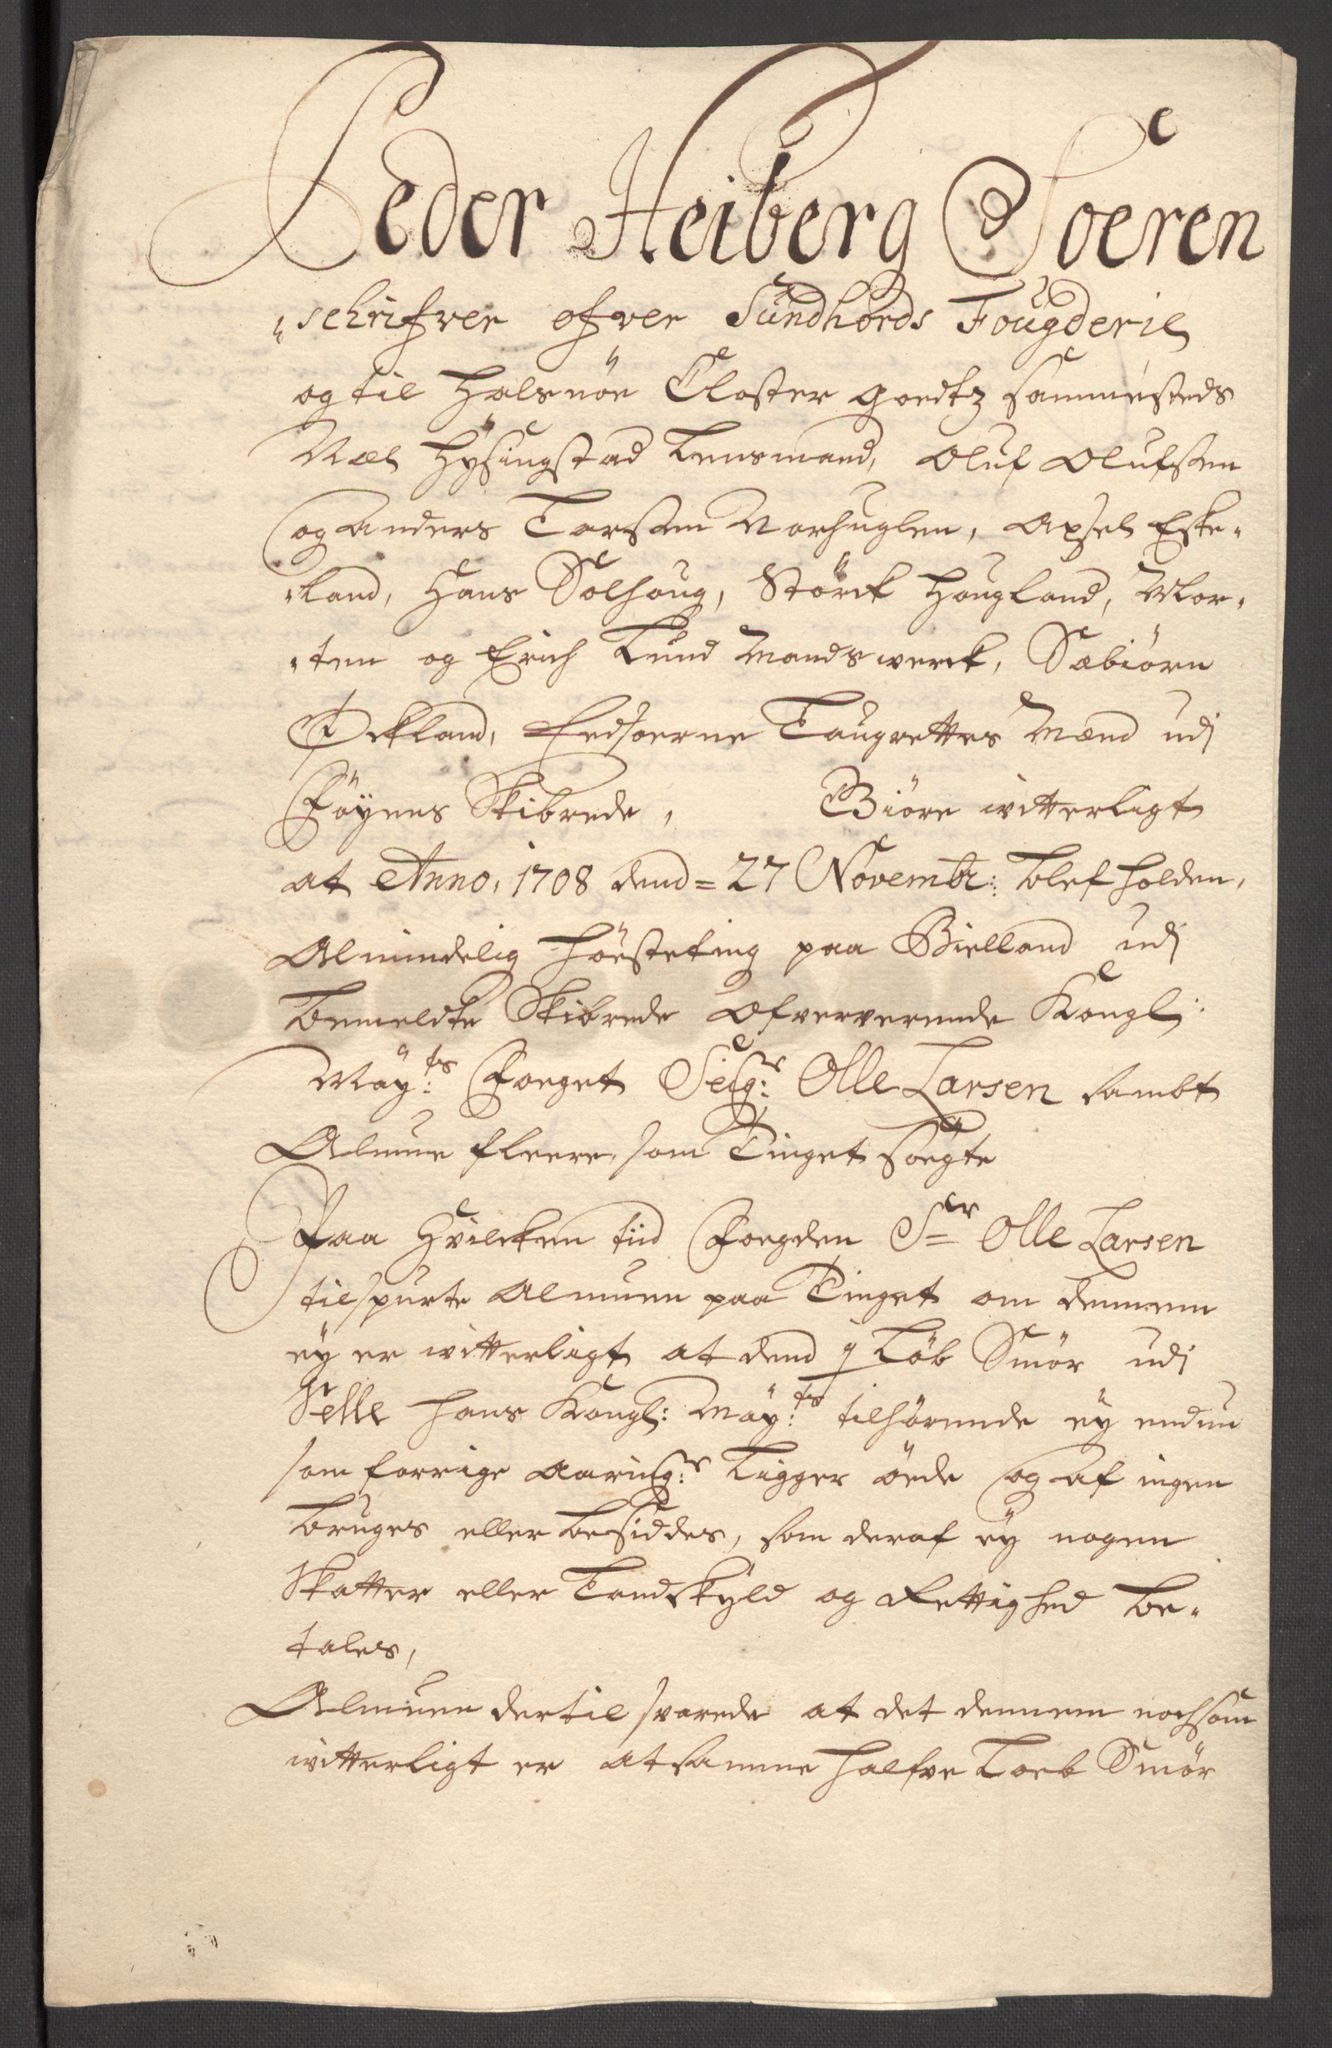 Peder Heiberg Soeren
"schrifver ofver Sundhords Fougderie
og til Halsnöe Closter Goedtz sammesteds
Niel Hÿsingstad Lensmand, Oluf Olufsen
og Anders Torsen Norhuglen, Axsel Eske„
„land, Hans Solhoug, Störck Hougland, Mor„
„ten og Erich Lund Mandsverck, Sæbiörn
Öckland, Eedsoerne Laugrettes Mænd udj
Föÿens Skibrede, Giöre witterligt
at Anno, 1708 dend = 27 Novembr: blef holden,
Almindelig Höesteting paa Bielland udj
bemeldte Skibrede Ofververende Kongl:
Maÿ:ts Foeget Seig:r Olle Larsen sambt
Almue fleere, som Tinget söegte
Paa Hvilcken tiid Foegden Sr Olle Larsen
tilspurte Almuen paa Tinget om dennem
eÿ er witterligt at dend ½ Löb Smör udj
Selle hans Kongl: Maÿ:ts tilhörende eÿ endnu
som forrige Aaringr: Ligger öede og af ingen
bruges eller besiddes, som deraf eÿ nogen
Skatter eller Landskÿld og Rettighed be„
tales,
Almuen dertil svarede at det dennem nochsom
witterligt er at samme halfve Loeb Smör